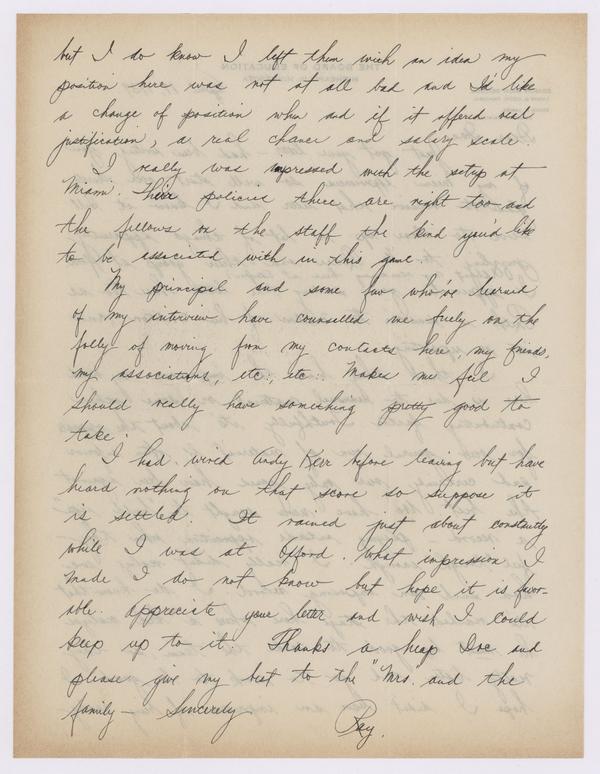 but I do know I left them with an idea my
position here was not at all bad and I'd like
a change of position when and if it offered real
justification, a real chance and salary scale.
I really was impressed with the setup at
Miami. Their policies there are right too and
the fellows on the staff the kind you'd like
to be associated with in this game.
My principal and some few who've learned
of my interview have counselled me freely on the
folly of moving from my contacts here, my friends,
my associations, etc., etc. Makes me feel I
should really have something pretty good to
take.
I had wired Andy Kerr before leaving but have
heard nothing on that score so suppose it
is settled. It rained just about constantly
while I was at Oxford. What impression I
made I do not know but hope it is favor-
able. Appreciate your letter and wish I could
keep up to it. Thanks a heap Doc and
please give my best to the "Mrs." and the
family — Sincerely
Ray.